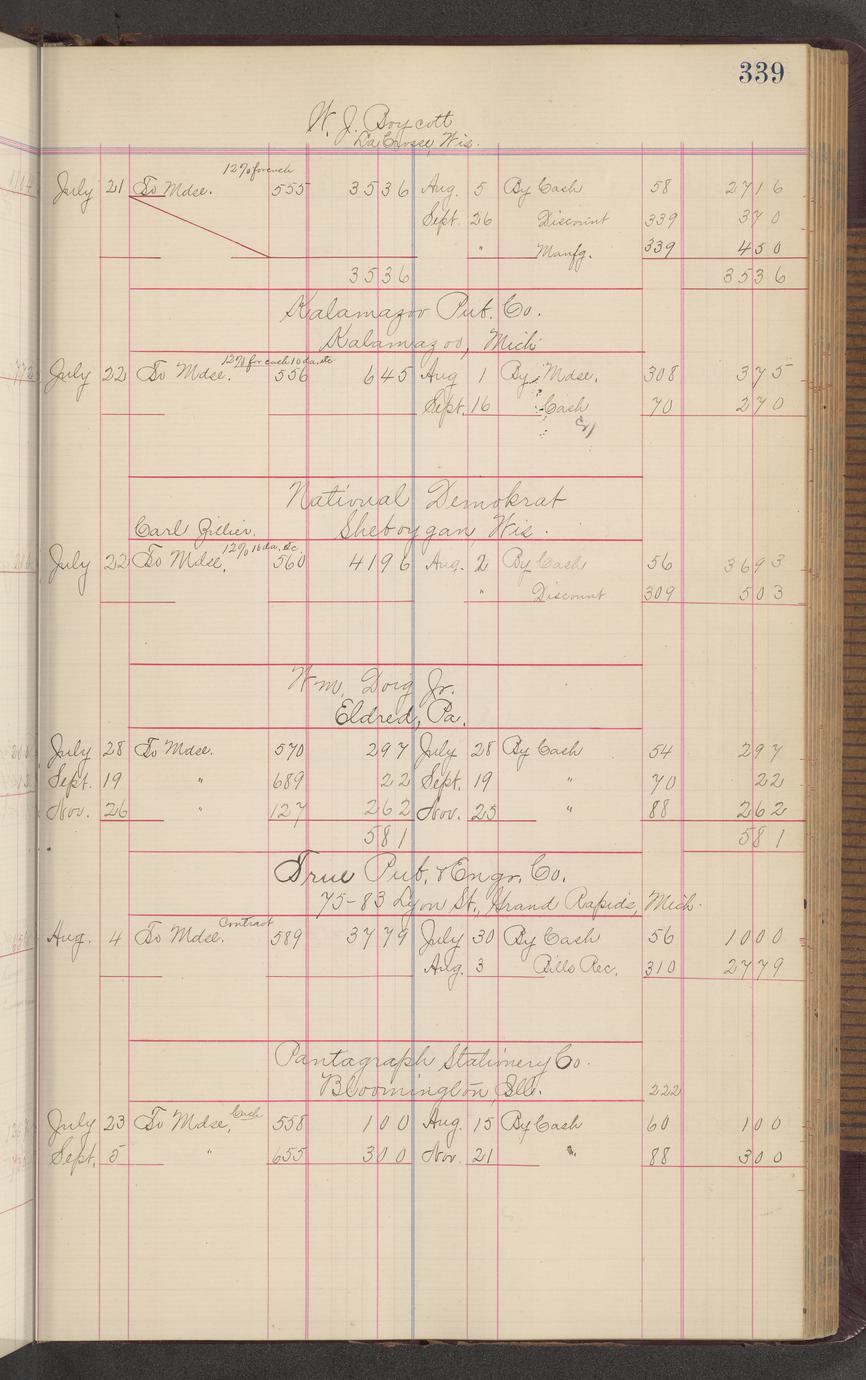 339
W. J. Boycott
La Crosse, Wis.
12% for cash
July 21 To Mdse. 555 3536 Aug. 5 By Cash 58 2716
Sept. 26 Discount 339 370
" Manfg. 339 450
3536 3536
Kalamazoo Pub. Co.
Kalamazoo, Mich
12% for cash 10 da. etc
July 22 To Mdse. 556 645 Aug 1 By Mdse. 308 375
Sept. 16 Cash 70 270
National Demokrat
Carl Zillier. Sheboygan, Wis.
12% 10 da. etc.
July 22 To Mdse. 560 4196 Aug. 2 By Cash 56 3693
" Discount 309 503
Wm. Doig Jr.
Eldred, Pa.
July 28 To Mdse. 570 297 July 28 By Cash 54 297
Sept. 19 " 689 22 Sept. 19 " 70 22
Nov. 26 " 127 262 Nov. 25 " 88 262
581 581
True Pub. & Engr. Co.
75-83 Lyon St., Grand Rapids, Mich.
Contract
Aug. 4 To Mdse. 589 3779 July 30 By Cash 56 1000
Aug. 3 Bills Rec. 310 2779
Pantagraph Stationery Co.
Bloomington, Ill. 222
Cash
July 23 To Mdse, 558 100 Aug. 15 By Cash 60 100
Sept. 5 " 655 300 Nov. 21 " 88 300